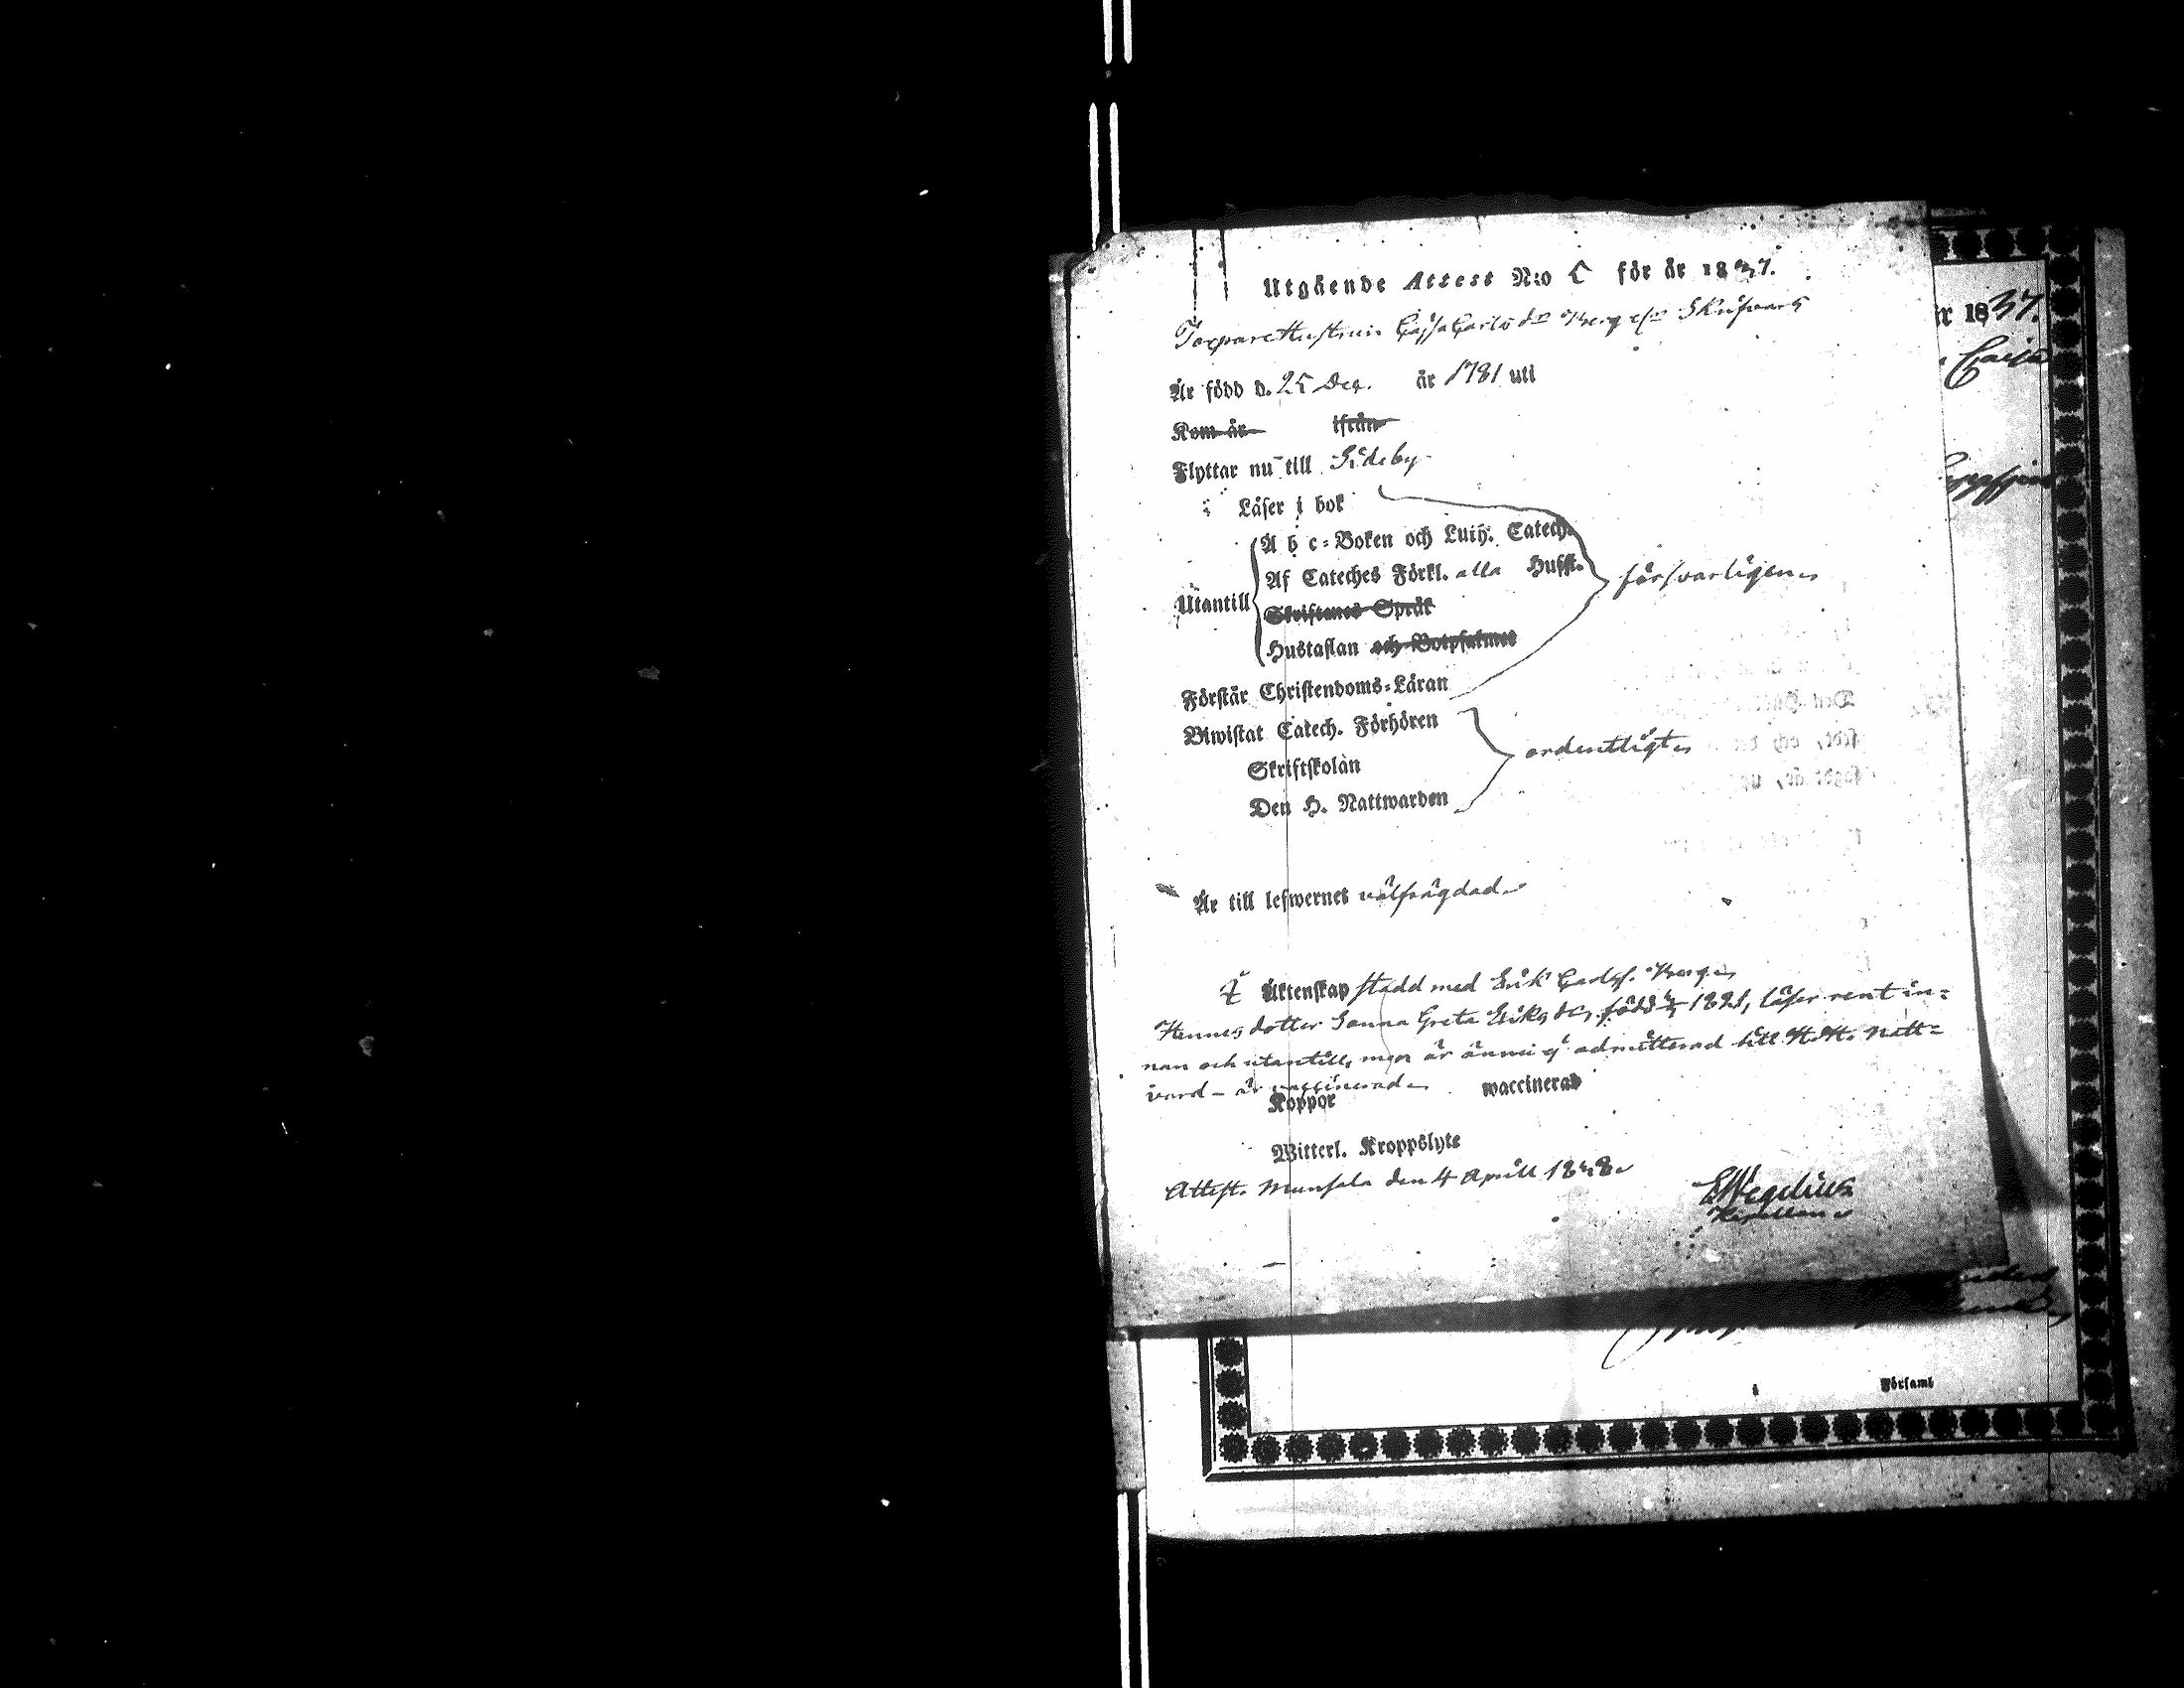 Utgående Attest N:o C för år 1837.
Torparehustrun Cajsa Carlsdr Berg
Är född d. 25 Dec. år 1781 uti
Kom år ifrån
Flyttar nu till Sideby
Läser i bok
A b c-Boken och Luth. Catech.
Af Cateches Förkl. alla Hussk. försvarligen
Utantill
Skriftenes Språk
Hustaflan och Botpsalmer
Förstår Christendoms-Läran
Biwistat Catech. Förhören
Skriftskolan ordentligt
Den H. Nattwarden
Är till lefwernet välfrägdad
I Äktenskap stadd med Erik Carlss. Berg
Hennes dotter Sanna Greta Eriksdr, född 1821, läser rent in-
nan och utantill, men är ännu ej admitterad till H. H. Natt-
vard – är vaccinerad
Koppor waccinerad
Witterl. Kroppslyte
Attest. Munsala den 4 April 1838
E Wegelius
Kapellan
r 1837.
Caisa
Församl